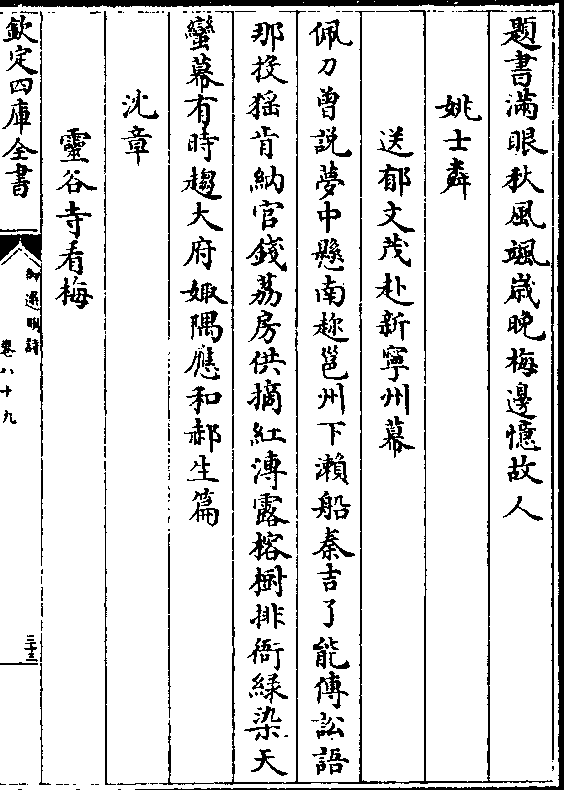 題書滿眼秋風颯歲晚梅邊憶故人
姚士粦
送郁文茂赴新寧州幕
佩刀曾説夢中懸南趂邕州下瀨船秦吉了能傳訟語
那投猺肯納官錢荔房供摘紅漙露榕樹排衙緑染天
蠻幕有時趨大府娵隅應和郝生篇
沈章
靈谷寺看梅
欽定四庫全書
御選明詩
卷八十九
三十三